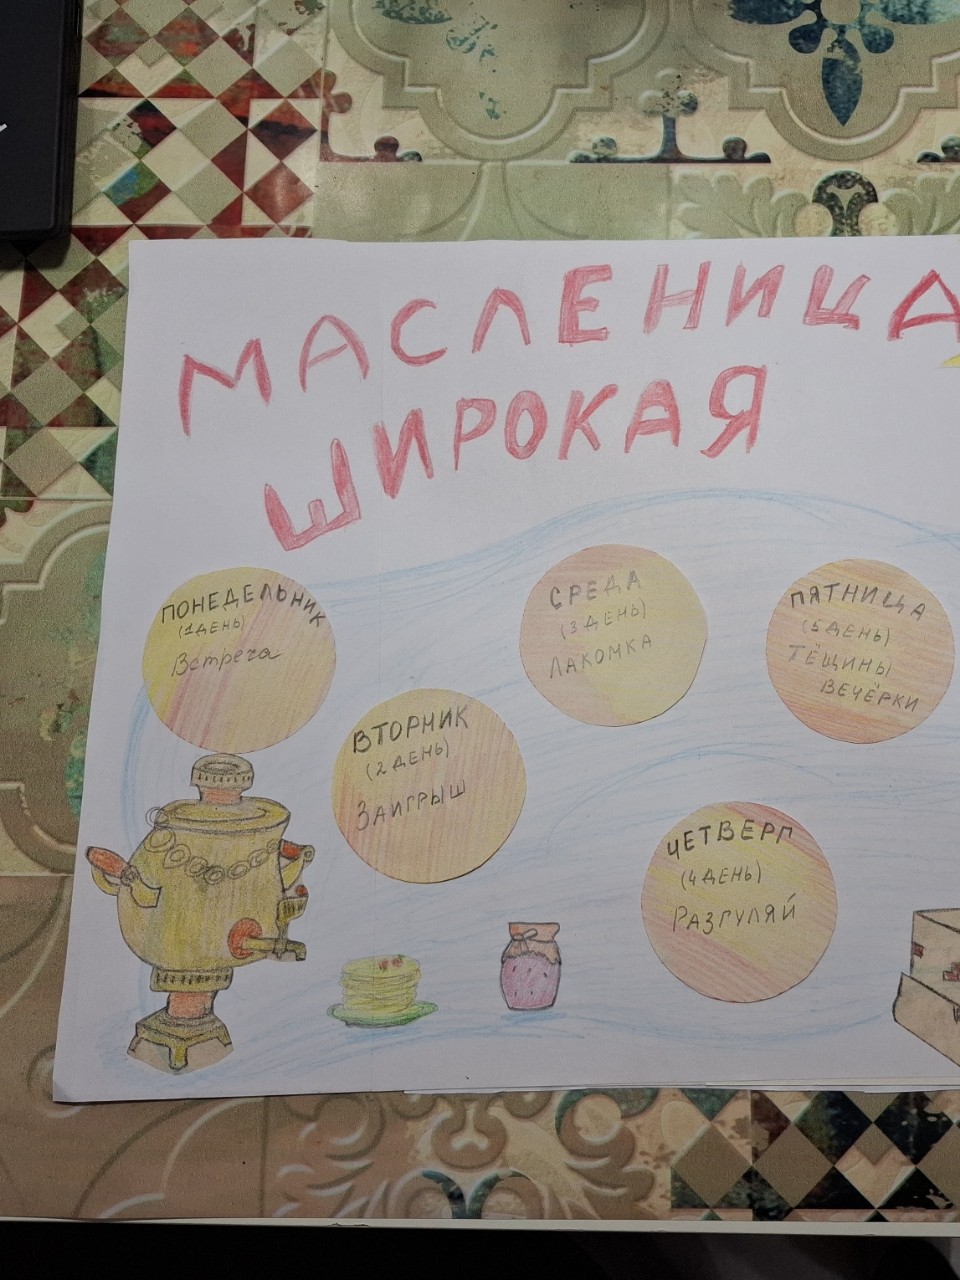 МАСЛЕНИЦА
ШИРОКАЯ
ПОНЕДЕЛЬНИК
(1ДЕНЬ)
Встреча
ВТОРНИК
(2 ДЕНЬ)
ЗАИГРЫШ
СРЕДА
(3 ДЕНЬ)
ЛАКОМКА
ЧЕТВЕРГ
(4 ДЕНЬ)
РАЗГУЛЯЙ
ПЯТНИЦА
(5 ДЕНЬ)
ТЁЩИНЫ
ВЕЧЁРКИ